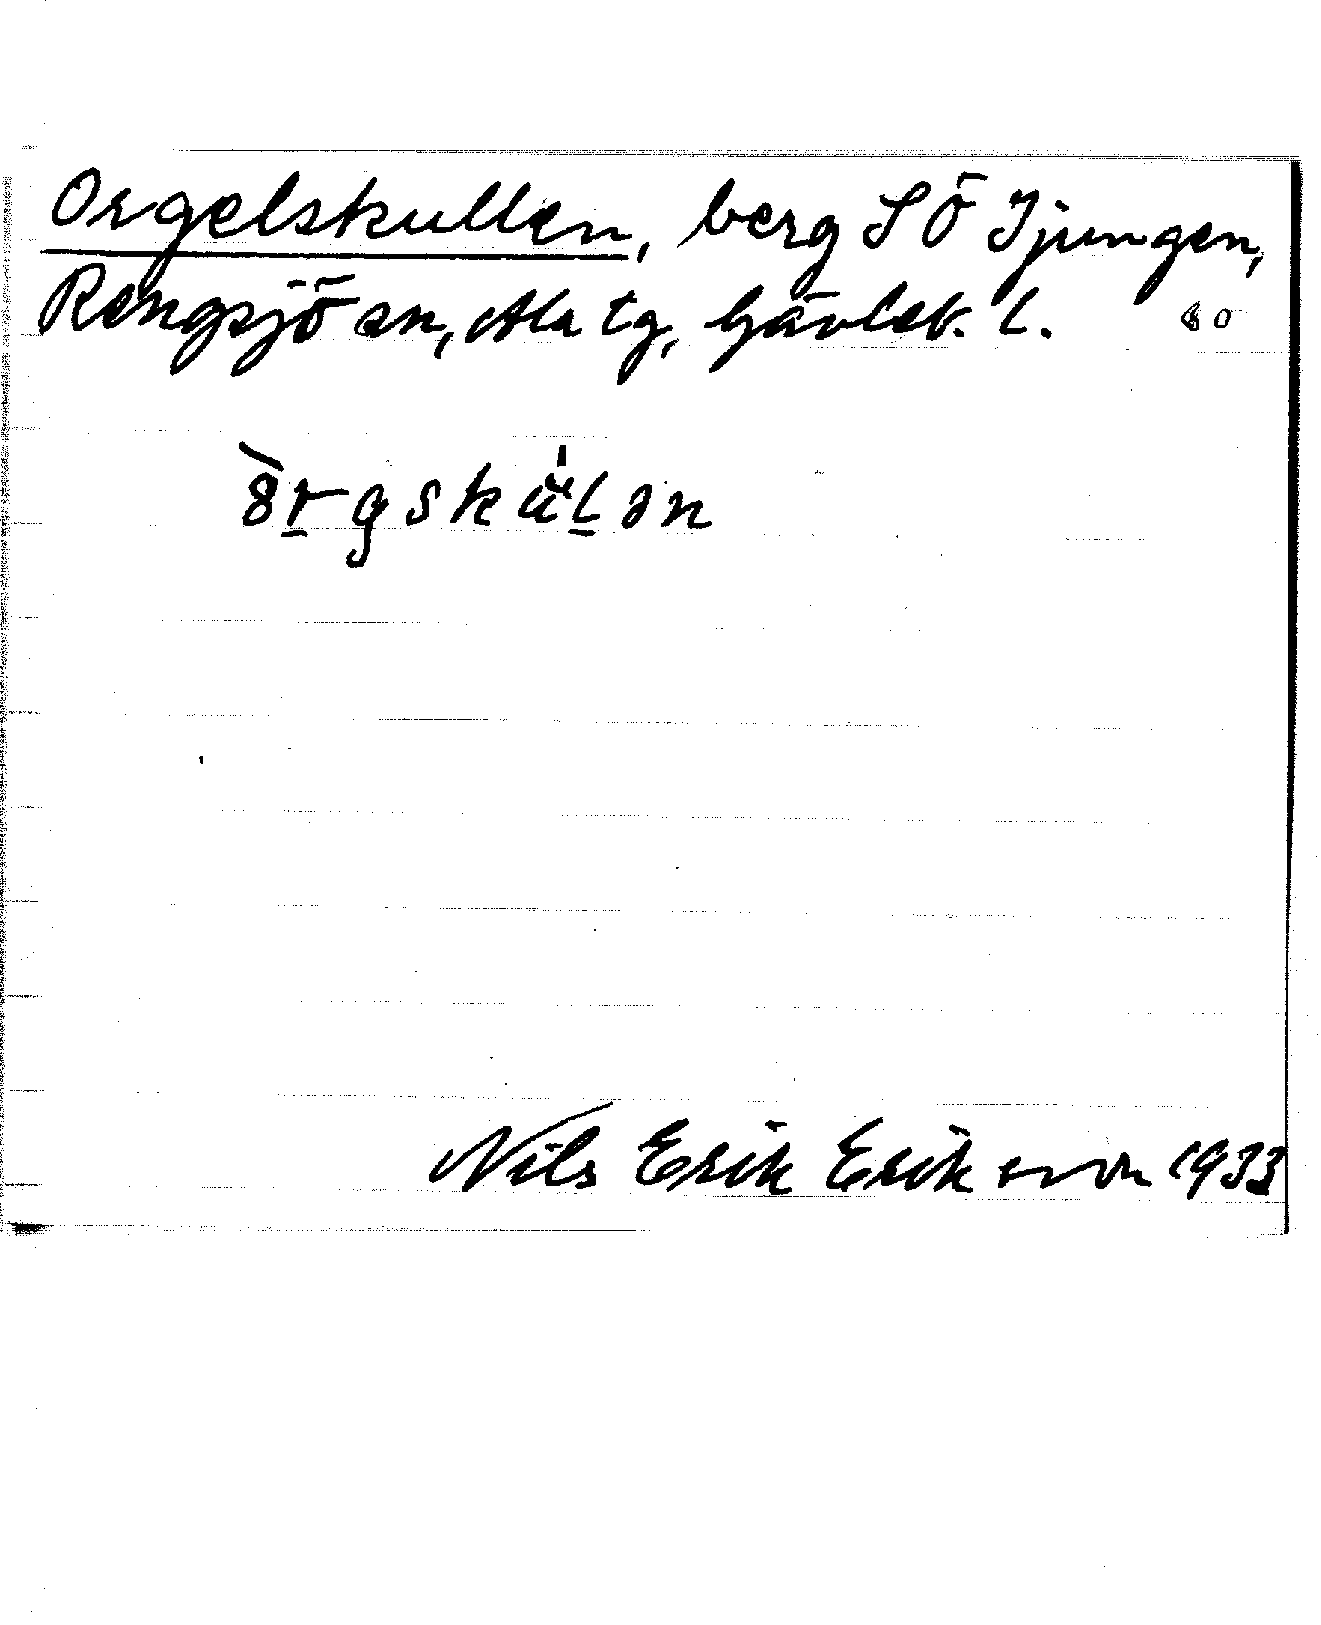 Orgelskullen, berg SÖ Tjungen,
Rengsjö sn, Ala tg, Gävleb. l. 80
Nils Erik Eriksson 1933